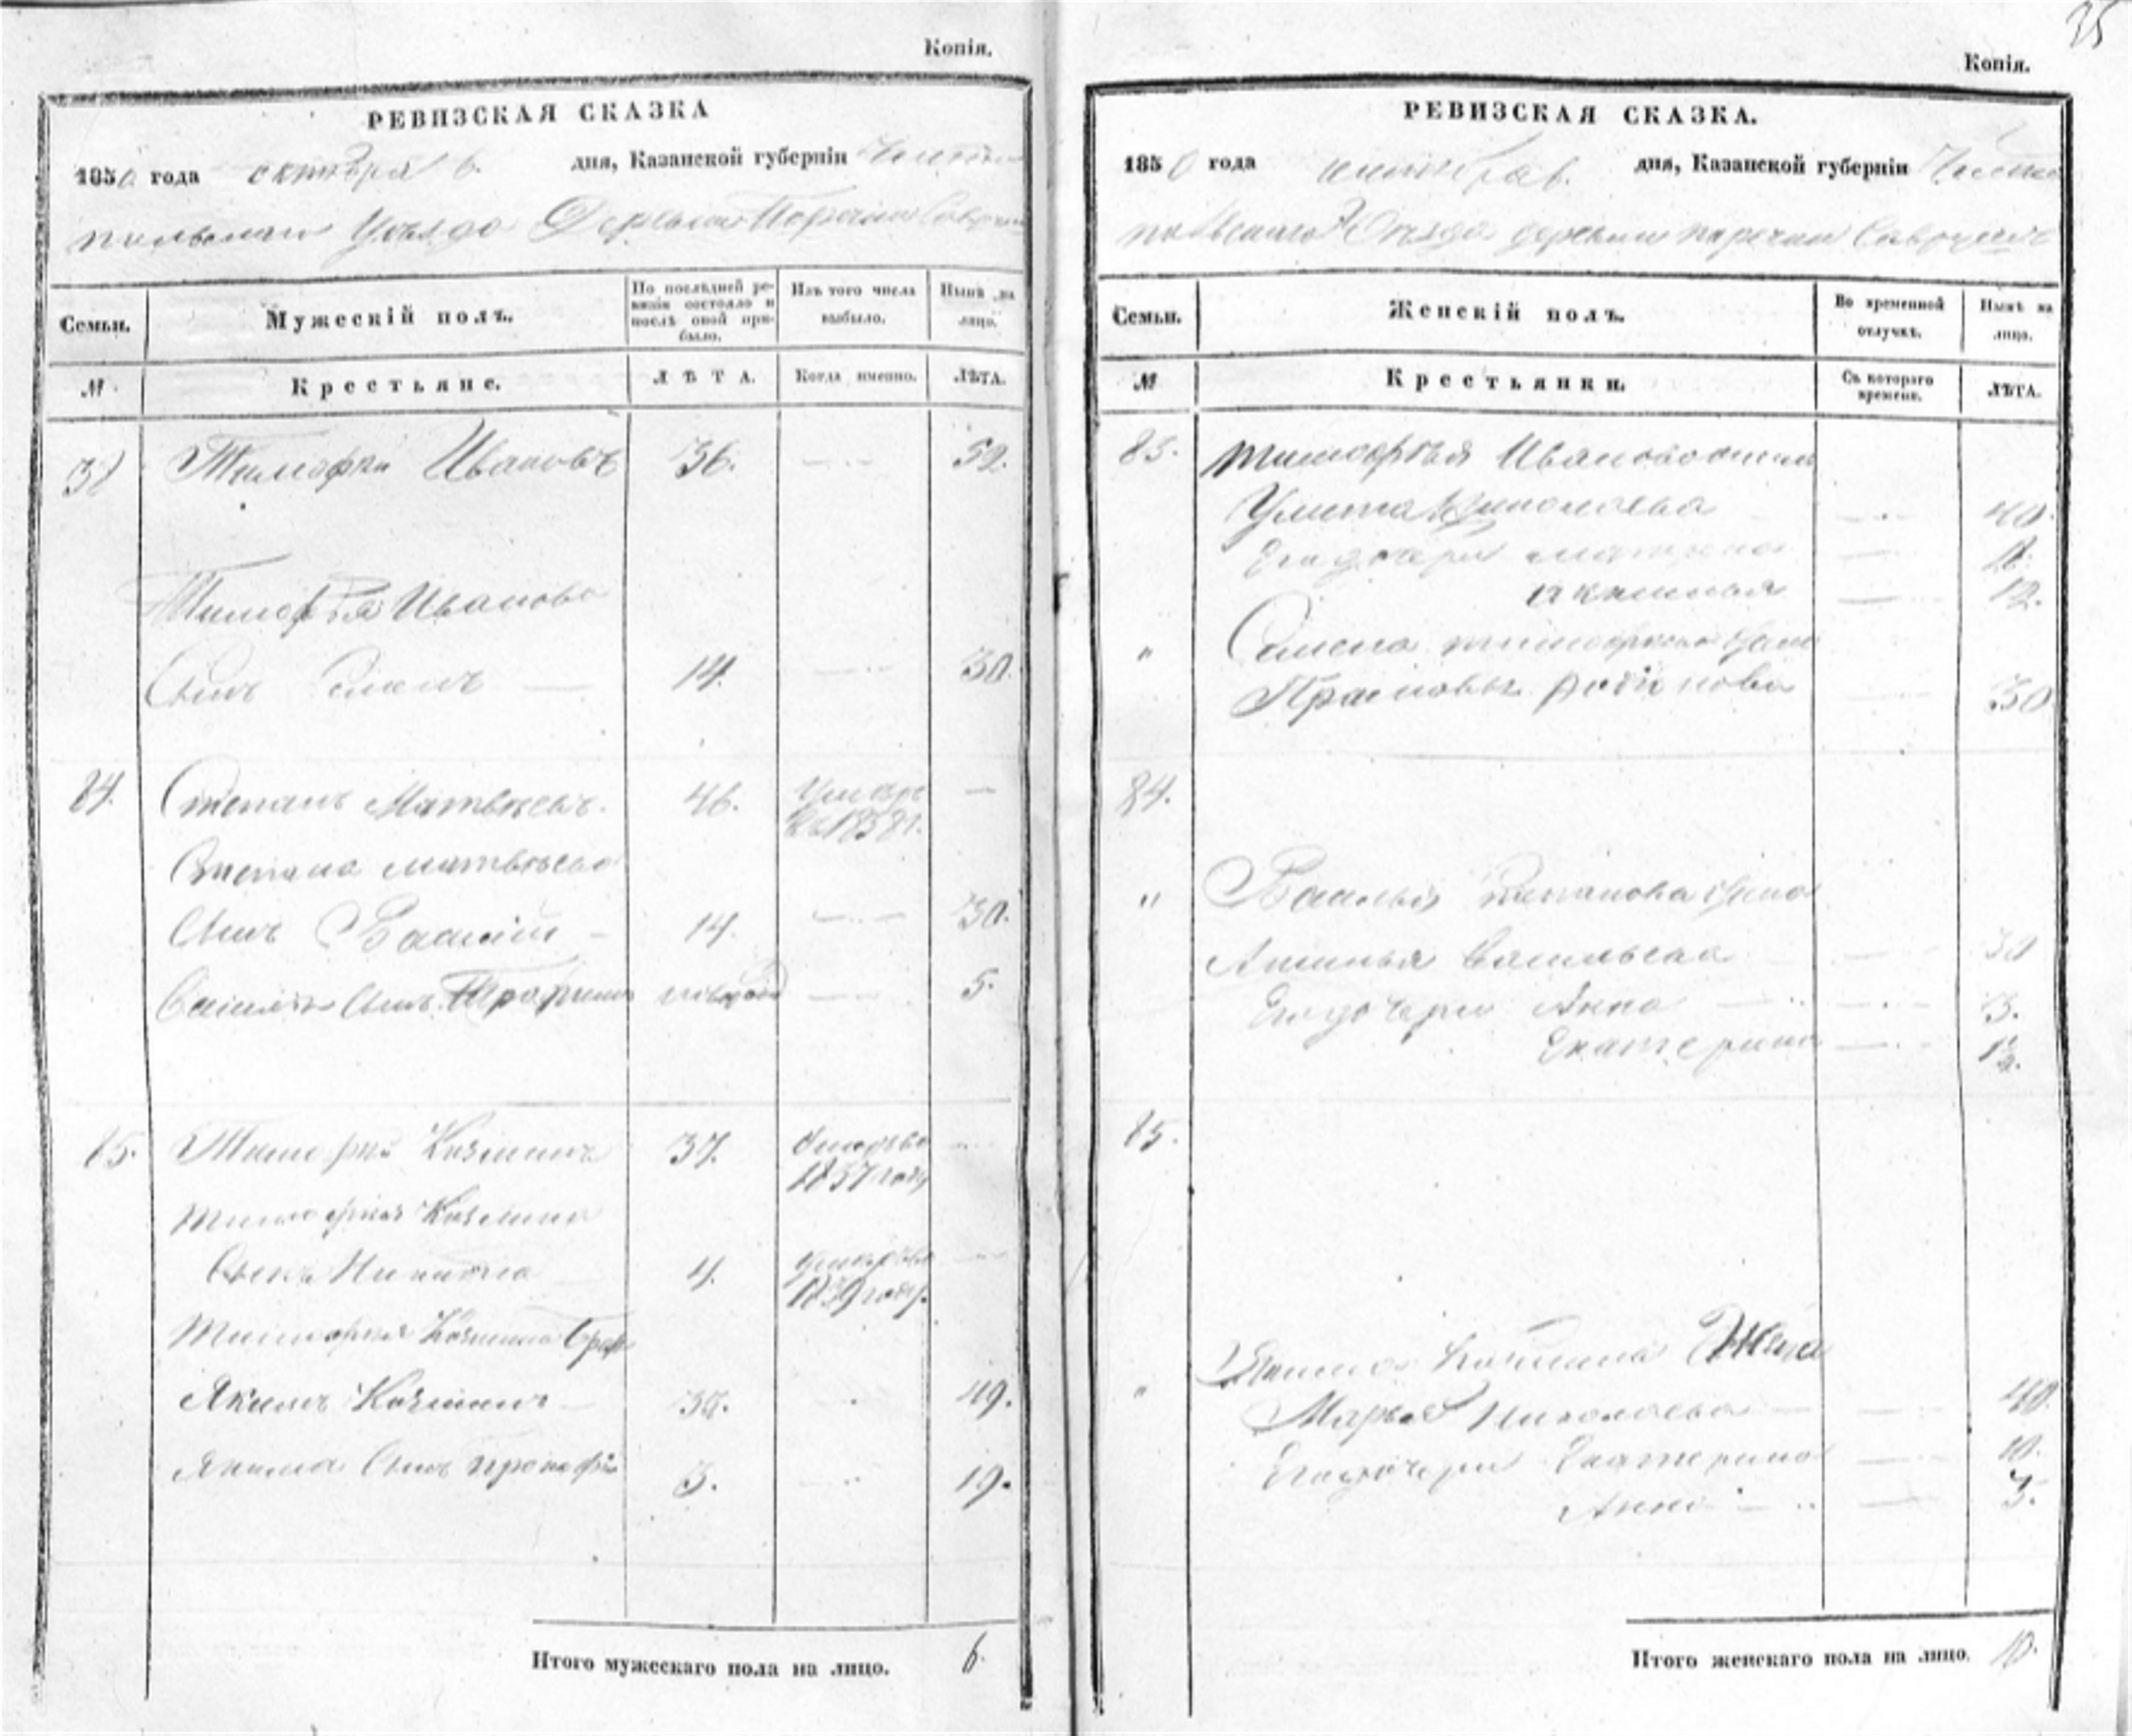 Копія.
РЕВИЗСКАЯ СКАЗКА
1850 года октября 6. дня, Казанской губерніи Чисто
польскаго Уѣзда Деревни
Семьи.
Мужескій полъ.
По послѣдней ре-
визіи состояло и
послѣ оной при-
было.
Изъ того числа
выбыло.
Нынѣ на
лицо.
№
Крестьяне.
ЛѢТА.
Когда именно.
ЛѢТА.
Тимофей Ивановъ 36. 52.
Тимофѣя Иванова
Сынъ Семенъ 14. 30.
84. Степанъ Матвѣевъ. 46.
Степана Матвѣева
Сынъ Василій 14. 30.
Василья Сынъ 5.
85. Тимофей Козминъ 37. 1837 году
Тимофея Козмина
Сынъ Никита 4. 1839 году.
Тимофея Козмина брат
Якимъ Козминъ 49.
Якима Сынъ Прокофій 3. 19.
Итого мужескаго пола на лицо. 6.
35
Копія.
РЕВИЗСКАЯ СКАЗКА.
1850 года октября 6. дня, Казанской губерніи Чисто
польскаго Уѣзда деревни
Семьи.
Женскій полъ.
Во временной
отлучкѣ.
Нынѣ на
лицо.
№
Крестьянки.
Съ котораго
времени.
ЛѢТА.
83. Тимофѣя Иванова жена
Улита 40.
Его дочери
Акинья 12.
" Семена Тимофеева жена
Прасковья Родионова 30
84.
" Василья Степанова жена
Васильева 30
Его дочери Анна 3.
Екатерина ½.
85.
" Якима Козмина Жена
Марья Николаева 40.
Его дочери Екатерина 10.
Анна 3.
Итого женскаго пола на лицо. 10.